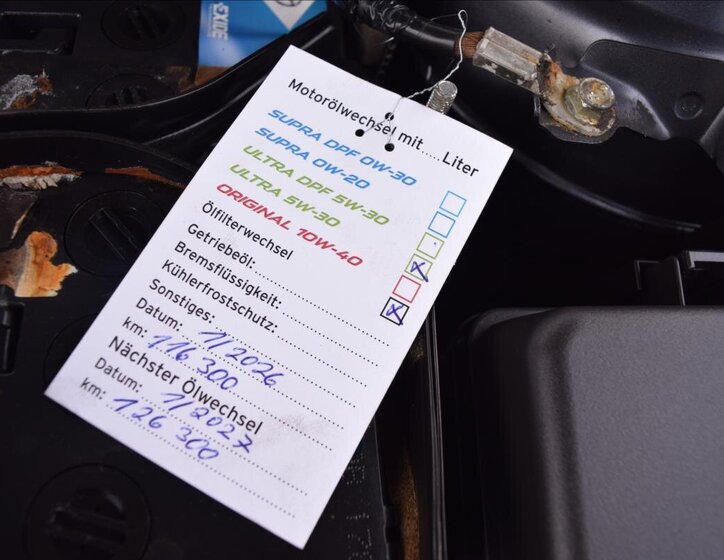 EXIDE
Motorölwechsel mit.....Liter
SUPRA DPF 0W-30
SUPRA 0W-20
ULTRA DPF 5W-30
ULTRA 5W-30
ORIGINAL 10W-40
Ölfilterwechsel
Getriebeöl:
Bremsflüssigkeit:
Kühlerfrostschutz:
Sonstiges:
Datum: 1/2026
km: 116 300
Nächster Ölwechsel
Datum: 1/2027
km: 126 300